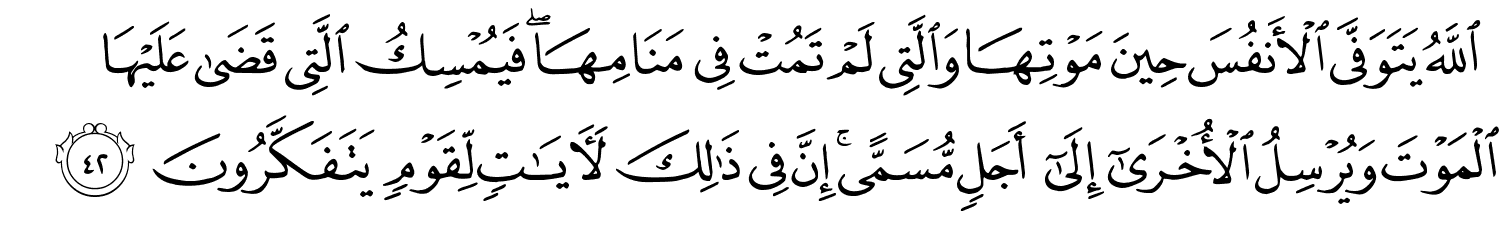 ٱللَّهُ يَتَوَفَّى ٱلْأَنفُسَ حِينَ مَوْتِهَا وَٱلَّتِى لَمْ تَمُتْ فِى مَنَامِهَا ۖ فَيُمْسِكُ ٱلَّتِى قَضَىٰ عَلَيْهَا
ٱلْمَوْتَ وَيُرْسِلُ ٱلْأُخْرَىٰٓ إِلَىٰٓ أَجَلٍ مُّسَمًّى ۚ إِنَّ فِى ذَٰلِكَ لَـَٔايَـٰتٍ لِّقَوْمٍ يَتَفَكَّرُونَ ٤٢